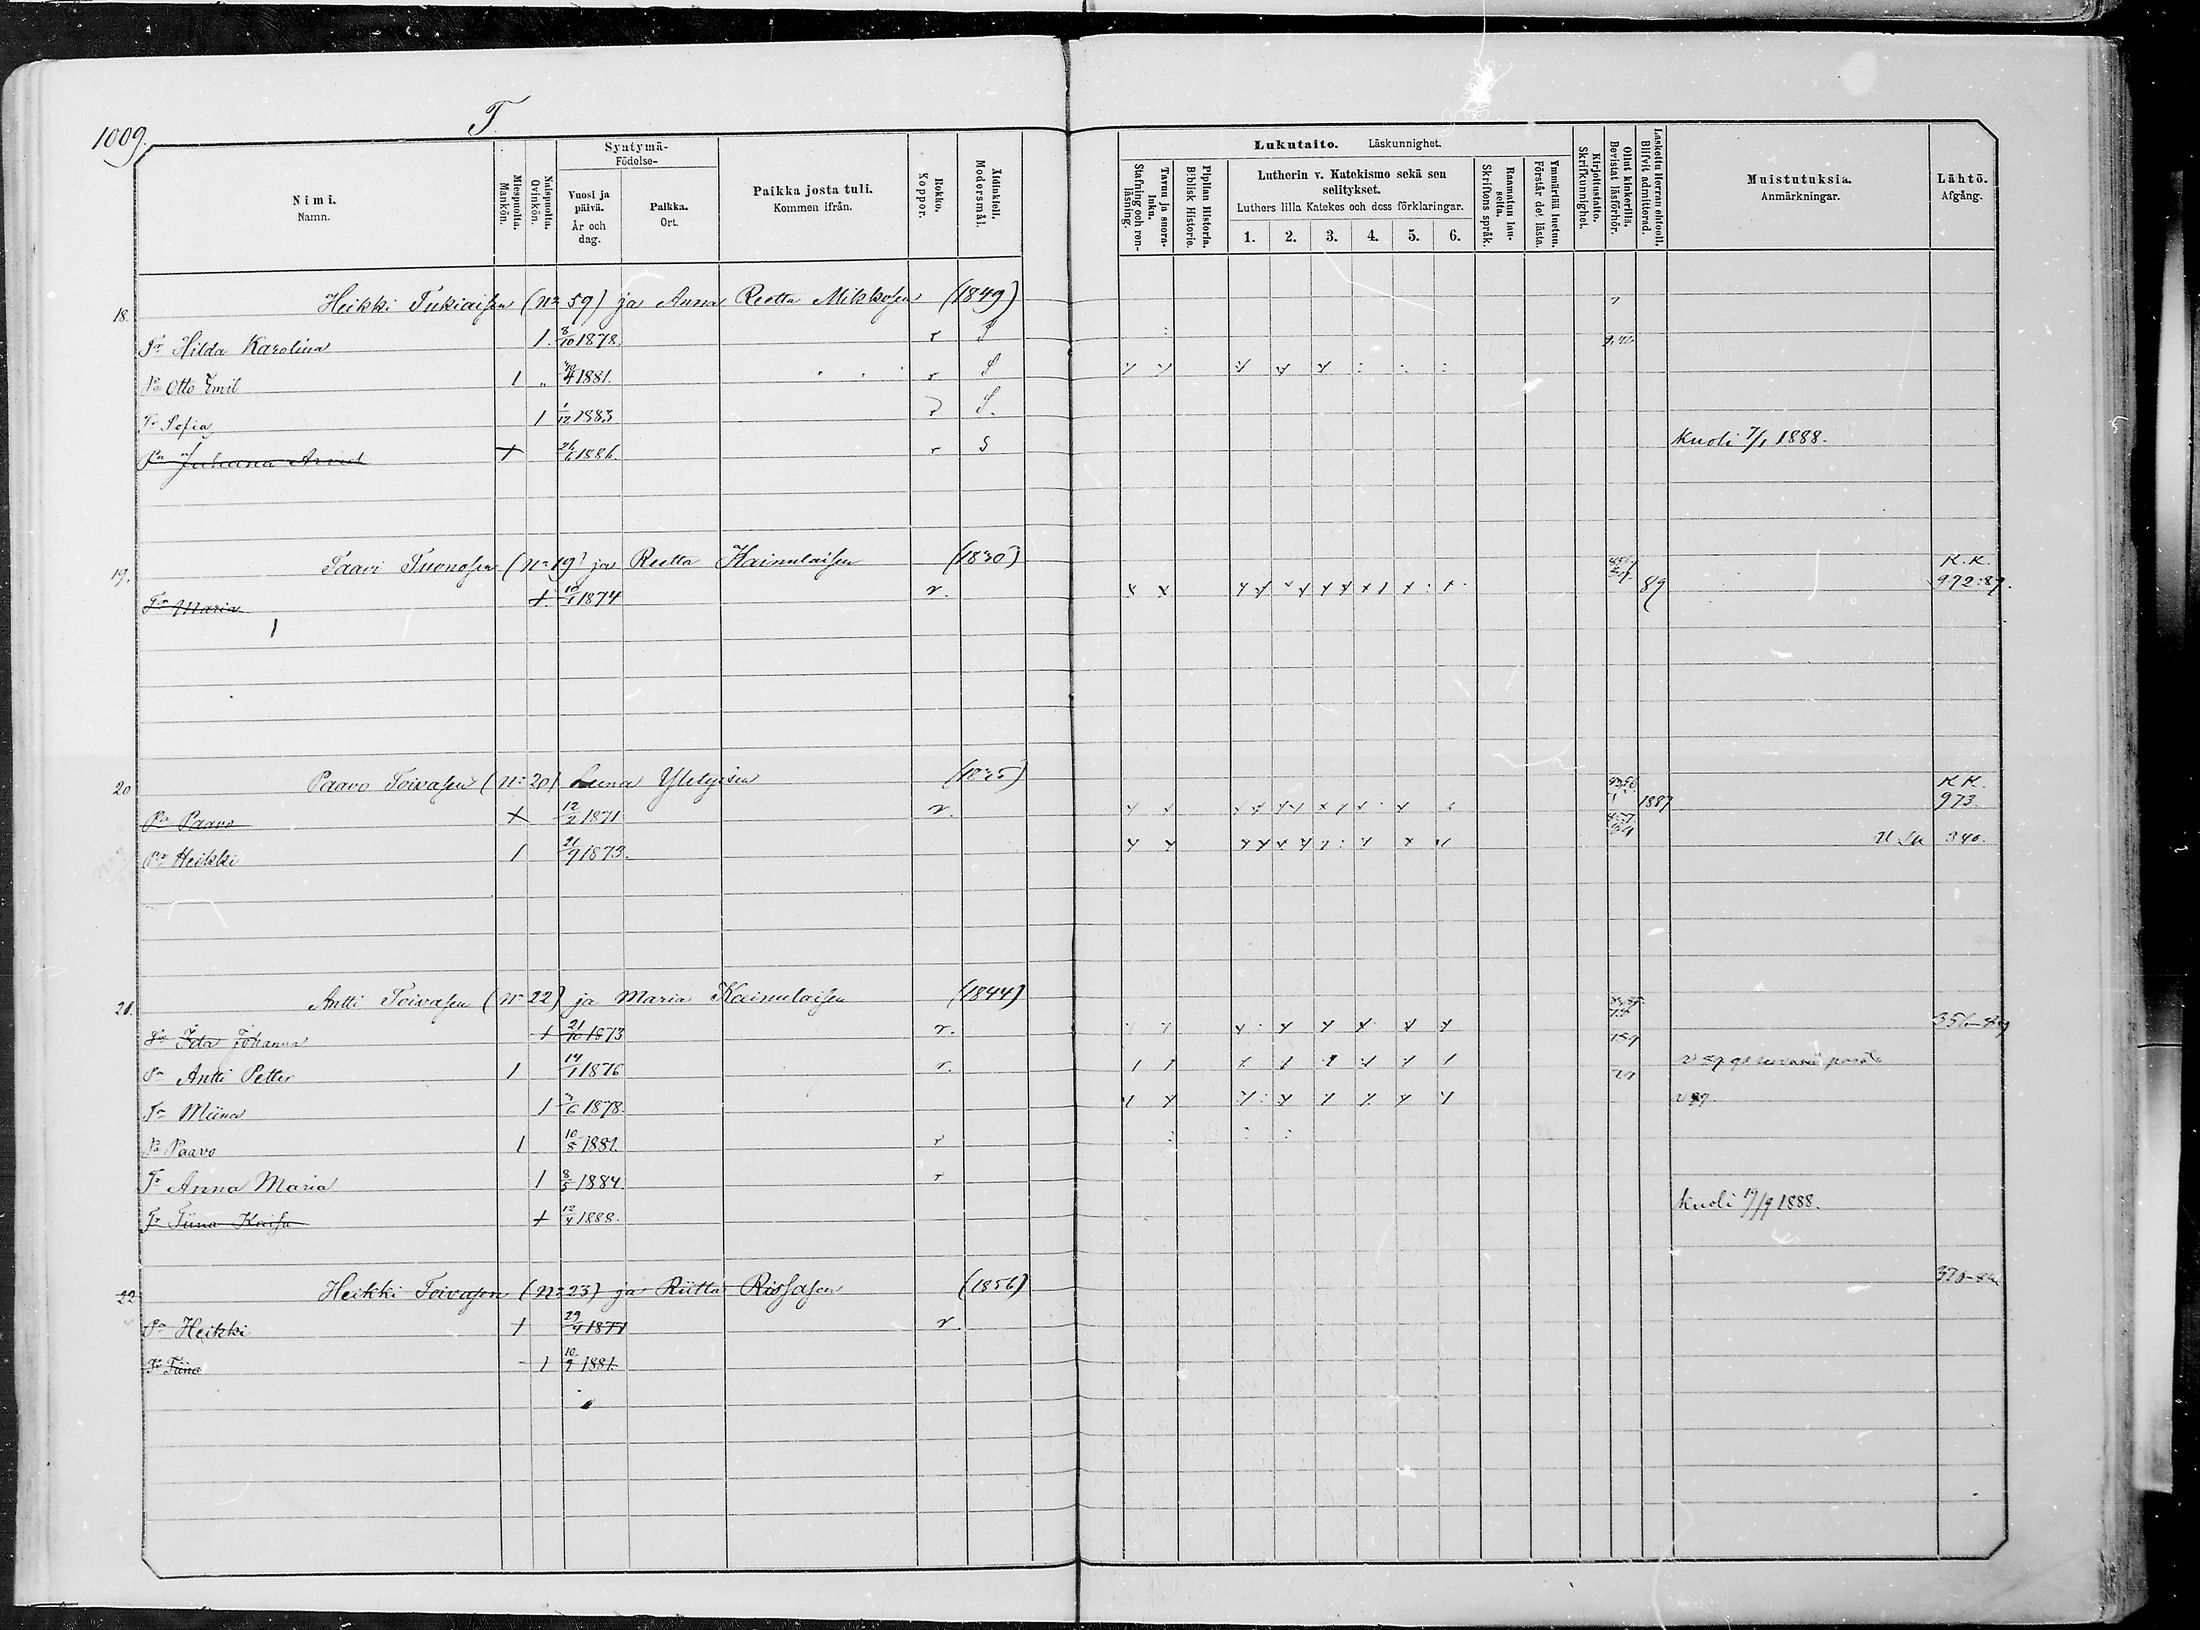 1009.
T.
Nimi.
Namn.
Miespuolta.
Mankön.
Naispuolta.
Qvinkön.
Syntymä-
Födelse-
Vuosi ja päivä.
År och dag.
Paikka.
Ort.
Paikka josta tuli.
Kommen ifrån.
Rokko.
Koppor.
Äidinkieli.
Modersmål.
Lukutaito. Läskunnighet.
Tavuu ja suora-luku.
Stafning och ren-läsning.
Piplian Historia.
Biblisk Historie.
Lutherin v. Katekismo sekä sen selitykset.
Luthers lilla Katekes och dess förklaringar.
1. 2. 3. 4. 5. 6.
Raamatun lau-seita.
Skriftens språk.
Ymmärtää luetun.
Förstår det lästa.
Kirjoitustaito.
Skrifkunnighet.
Ollut kinkerillä.
Bevistat läsförhör.
Laskettu Herran ehtooll.
Blifvit admitterad.
Muistutuksia.
Anmärkningar.
Lähtö.
Afgång.
18. Heikki Tukiaisen (No 59) ja Anna Reetta Mikkosen (1849)
Tr Hilda Karolina 1. 8/10 1878. r S
Pa Otto Emil 1 " 4 1881. r S
Tr Sofia 1 1/12 1883 S.
Pa Juhana Arvid + 26/6 1886. r S Kuoli 7/1 1888.
19. Taavi Tuonosen (No 19) ja Reetta Kainulaisen (1830) K.K.
Tr Maria + 10/1 1874 r. 89 972:89.
20 Paavo Toivasen (No 20) Leena Yletyisen (1835) K K.
Pa Paavo + 12/2 1871 r. 1887 973
Pa Heikki 1 21/9 1873. 340.
21. Antti Toivasen (No 22) ja Maria Kainulaisen (1844)
Tr Ida Johanna + 21/10 1873 r. 356-89
Pa Antti Petter 1 14/1 1876 r.
Tr Miina 1 3/6 1878.
Pa Paavo 1 10/8 1881. r
Tr Anna Maria 1 8/5 1884. r
Tr Tiina Kaisa + 12/4 1888. Kuoli 19/9 1888.
22 Heikki Toivasen (No 23) ja Riitta Rissasen (1856)
Pa Heikki 1 29/4 1877 r.
Tr Tiina 1 10/9 1881.